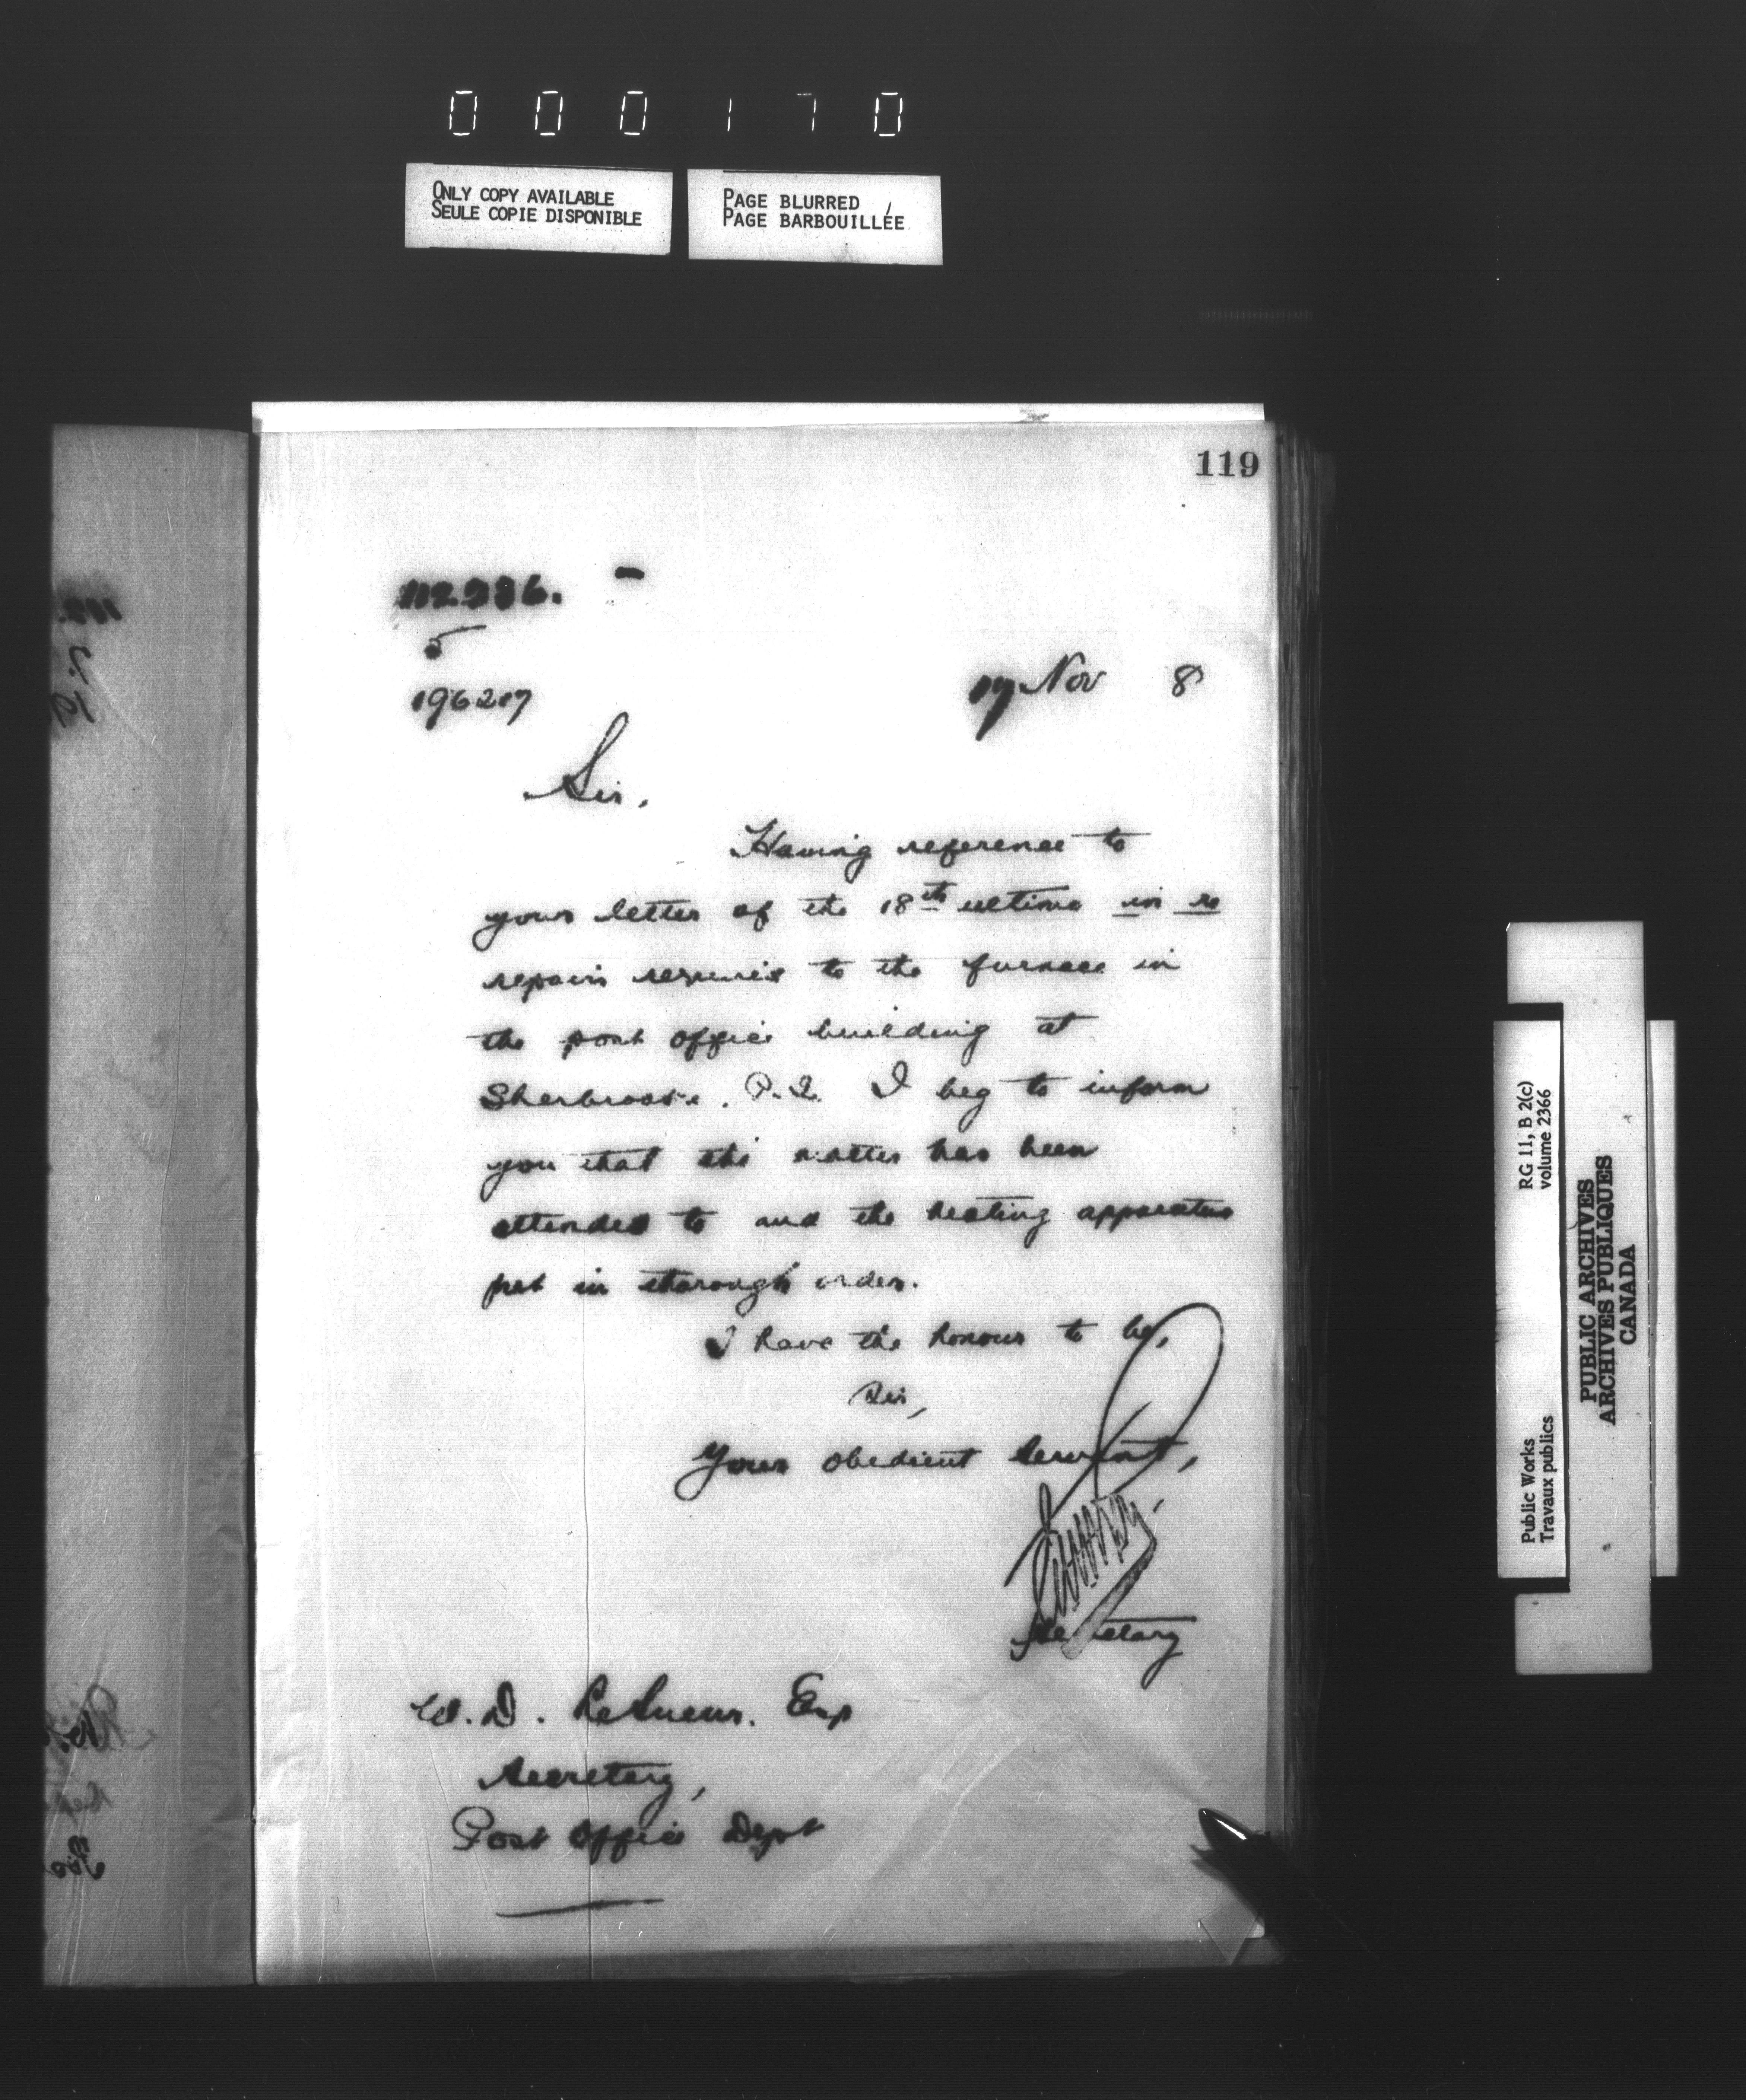 000170
ONLY COPY AVAILABLE
SEULE COPIE DISPONIBLE
PAGE BLURRED
PAGE BARBOUILLÉE
119
5
196217
17 Nov 8
Sir,
Having reference to
your letter of the 18th ultimo in re
repairs required to the furnace in
the post office building at
Sherbrooke. P.Q. I beg to inform
you that the matter has been
attended to and the heating apparatus
put in thorough order.
I have the honour to be,
Sir,
Your obedient servant,
Secretary
W. D. LeSueur. Esq
Secretary,
Post Office Dept
Public Works
Travaux publics
RG 11, B 2(c)
volume 2366
PUBLIC ARCHIVES
ARCHIVES PUBLIQUES
CANADA